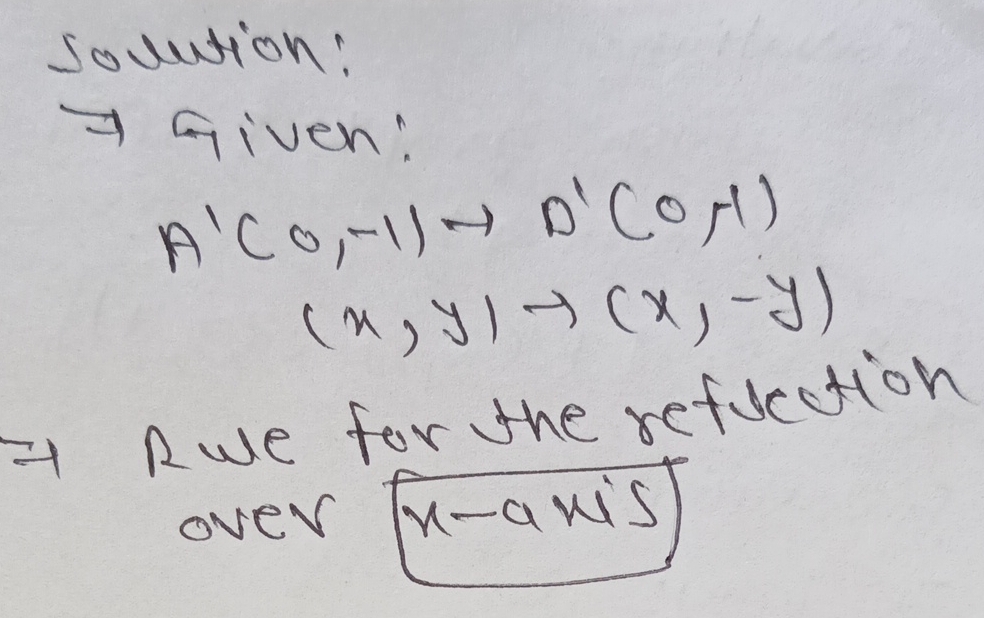 Solution:
→ Given:
A'(0,-1) → D'(0,1)
(x, y) → (x, -y)
→ Rule for the reflection
over x-axis